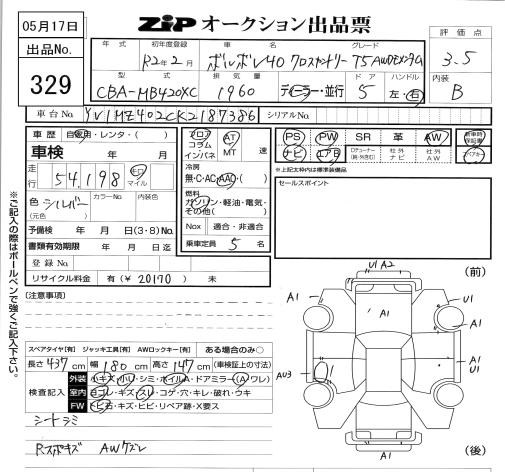 05月17日
出品No.
329
ZIP オークション出品票
評価点
3.5
内装
B
年式 初年度登録 車名 グレード
R2年2月 ボルボV40 クロスカントリー T5 AWD
型式 排気量 ドア ハンドル
CBA-MB420XC 1960 ディーラー・並行 5 左・右
車台No. YV1MZ402CK2187386 シリアルNo.
車歴 自家用・レンタ・( )
車検 年 月
走行 54,198 km マイル
色 シルバー カラーNo. 内装色
(元色)
予備検 年 月 日(3・8)No.
書類有効期限 年 月 日迄
登録No.
リサイクル料金 有(¥ 20170 ) 未
フロア コラム インパネ AT MT 速
冷房
無・C・AC・AAC・( )
燃料
ガソリン・軽油・電気・その他( )
Nox 適合・非適合
乗車定員 5 名
PS PW SR 革 AW 新車時保証書
ナビ エアB 社外ナビ 社外AW
※上記太枠内は標準装備品
セールスポイント
※ご記入の際はボールペンで強くご記入下さい。
[注意事項]
スペアタイヤ[有] ジャッキ工具[有] AWロックキー[有] ある場合のみ○
長さ 437 cm 幅 180 cm 高さ 147 cm (車検証上の寸法)
検査記入
外装 小キズ・小U・シミ・ホイルA・ドアミラー(A・ワレ)
室内 ヨゴレ・キズ・スレ・コゲ・穴・キレ・破れ・ウキ
FW トビ石・キズ・ヒビ・リペア跡・X要ス
シートシミ
Rスポキズ AWケズレ
(前)
U1 A2
A1
A1
U1
A1
A1
U1
AU3
A1
A1
(後)